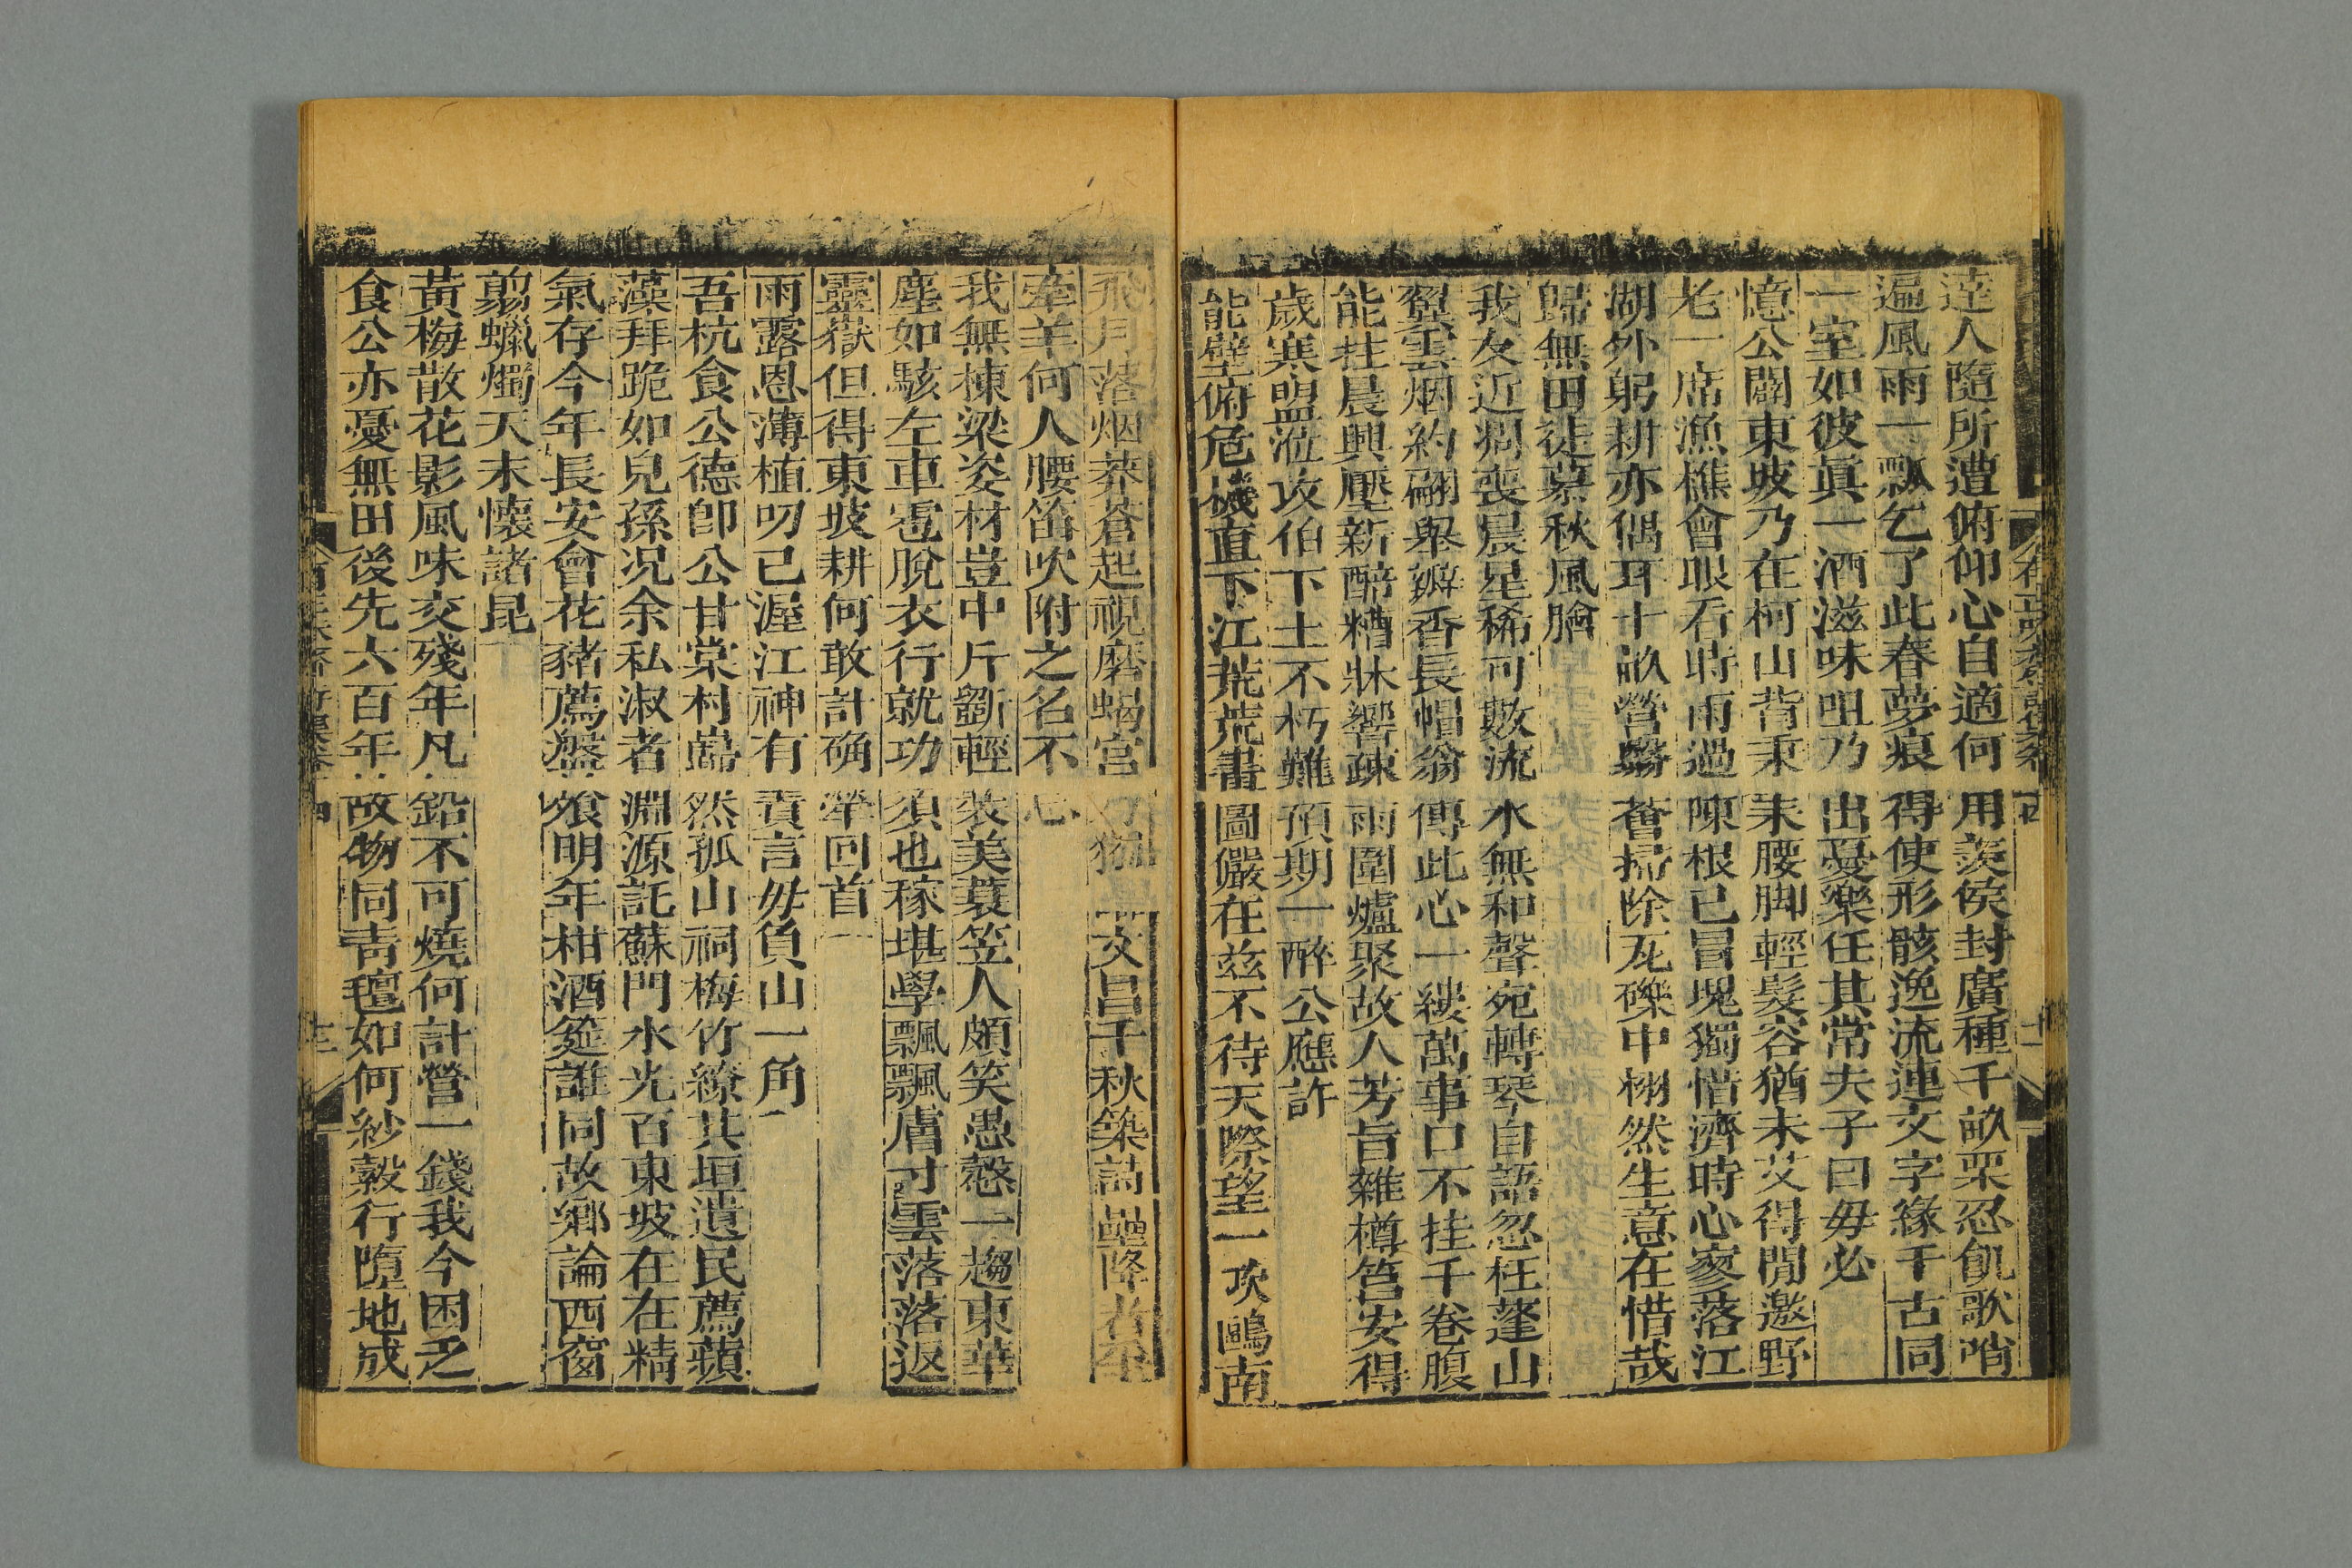 達人隨所遭俯仰心自適何用羨侯封廣種千畝栗忍飢歌哨
遍風雨一瓢乞了此春夢痕得使形骸逸流連文字緣千古同
一室如彼眞一酒滋味咀乃出憂樂任其常夫子曰毋必
憶公闢東坡乃在柯山背秉耒腰脚輕髮容猶未艾得閒邀野
老一席漁樵會眼看時雨過陳根已冒塊獨惜濟時心寥落江
湖外躬耕亦偶耳十畝營翳薈掃除瓦礫中栩然生意在惜哉
歸無田徒慕秋風膾
我友近凋喪晨星稀可數流水無和聲宛轉琴自語忽枉蓬山
翼雲烟約翩舉瓣香長帽翁傳此心一縷萬事口不挂千卷腹
能拄晨興壓新醅糟牀響疎雨圍爐聚故人芳旨雜樽筥安得
歲寒盟涖攻伯下土不朽難預期一醉公應許
能壁俯危機直下江荒荒畫圖儼在茲不待天際望一攻鷗南
飛月落烟莽蒼起視磨蝎宮 文昌千秋築詩壘降者
牽羊何人腰笛吹附之名不忘
我無棟梁姿材豈中斤斲輕裝美蓑笠人頗笑愚慤一趨東華
塵如駭左車雹脫衣行就功須也稼堪學飄飄膚寸雲落落返
靈嶽但得東坡耕何敢計确犖回首
雨露恩薄植叨已渥江神有責言毋負山一角
吾杭食公德卽公甘棠村巋然孤山祠梅竹繚其垣遺民薦蘋
藻拜跪如兒孫況余私淑者淵源託蘇門水光百東坡在在精
氣存今年長安會花豬薦盤飧明年柑酒筵誰同故鄉論西窗
翦蠟燭天末懷諸昆
黃梅散花影風味交殘年凡鉛不可燒何計營一錢我今困乏
食公亦憂無田後先六百年故物同靑氊如何紗縠行墮地成